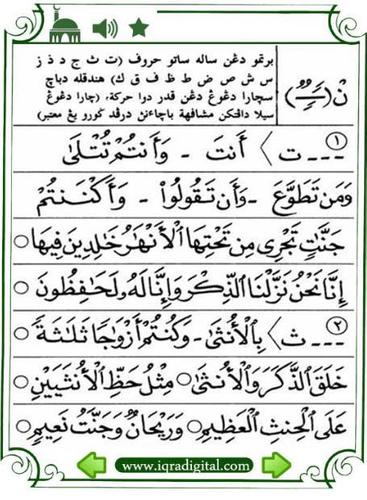 نْ (ــًــٍــٌ)
برتمو دڠن ساله ساتو حروف (ت ث ج د ذ ز
س ش ص ض ط ظ ف ق ك) هندقله دباچ
سچارا دڠوڠ دڠن قدر دوا حركة، (چارا دڠوڠ
سيلا دافتكن مشافهة باچاءنڽ درڤد ݢورو يڠ معتبر)
١ ـ ـ ـ ت ﴾ أَنتَ - وَأَنتُمْ تُتْلَىٰ
وَمَن تَطَوَّعَ - وَأَن تَقُولُوا۟ - وَأَكْنَنتُمْ
جَنَّٰتٍ تَجْرِى مِن تَحْتِهَا ٱلْأَنْهَٰرُ خَٰلِدِينَ فِيهَا ○
إِنَّا نَحْنُ نَزَّلْنَا ٱلذِّكْرَ وَإِنَّا لَهُۥ لَحَٰفِظُونَ ○
٢ ـ ـ ـ ث ﴾ بِٱلْأُنثَىٰ - وَكُنتُمْ أَزْوَٰجًا ثَلَٰثَةً ○
خَلَقَ ٱلذَّكَرَ وَٱلْأُنثَىٰ ○ مِثْلُ حَظِّ ٱلْأُنثَيَيْنِ ○
عَلَى ٱلْحِنثِ ٱلْعَظِيمِ ○ وَرَيْحَانٌ وَجَنَّتُ نَعِيمٍ ○
www.iqradigital.com